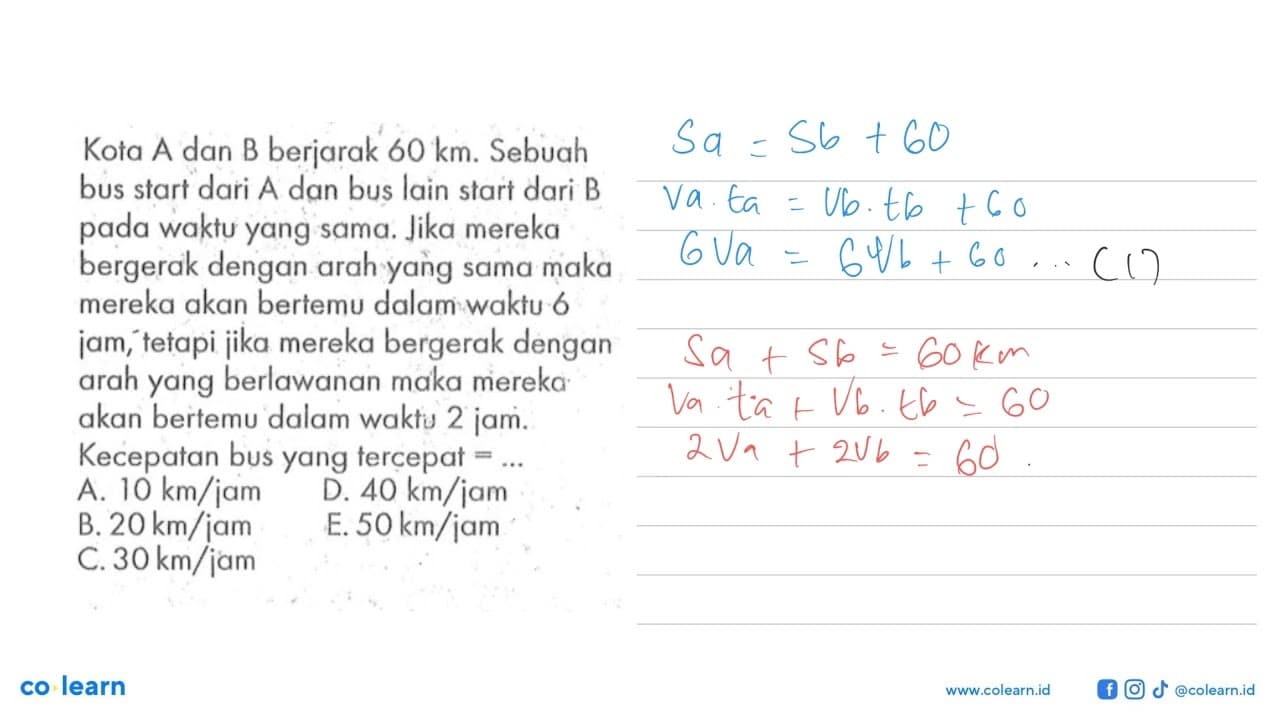 Kota A dan B berjarak 60 km. Sebuah
bus start dari A dan bus lain start dari B
pada waktu yang sama. Jika mereka
bergerak dengan arah yang sama maka
mereka akan bertemu dalam waktu 6
jam, tetapi jika mereka bergerak dengan
arah yang berlawanan maka mereka
akan bertemu dalam waktu 2 jam.
Kecepatan bus yang tercepat = ...
A. 10 km/jam D. 40 km/jam
B. 20 km/jam E. 50 km/jam
C. 30 km/jam
Sa = Sb + 60
Va.ta = Vb.tb + 60
6Va = 6Vb + 60 ... (1)
Sa + Sb = 60 km
Va.ta + Vb.tb = 60
2Va + 2Vb = 60.
co learn
www.colearn.id
@colearn.id